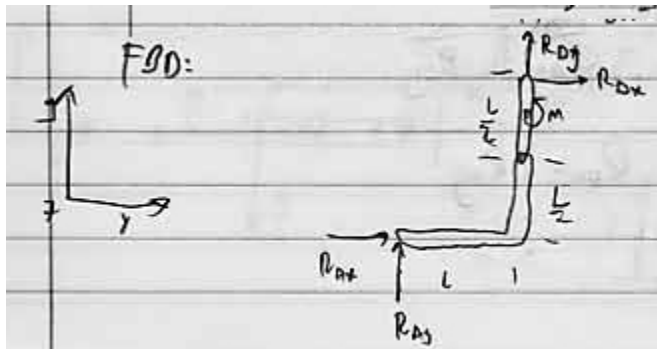 FBD:
R_Dy
R_Dx
L/2
M
L/2
R_Ax
L
R_Ay